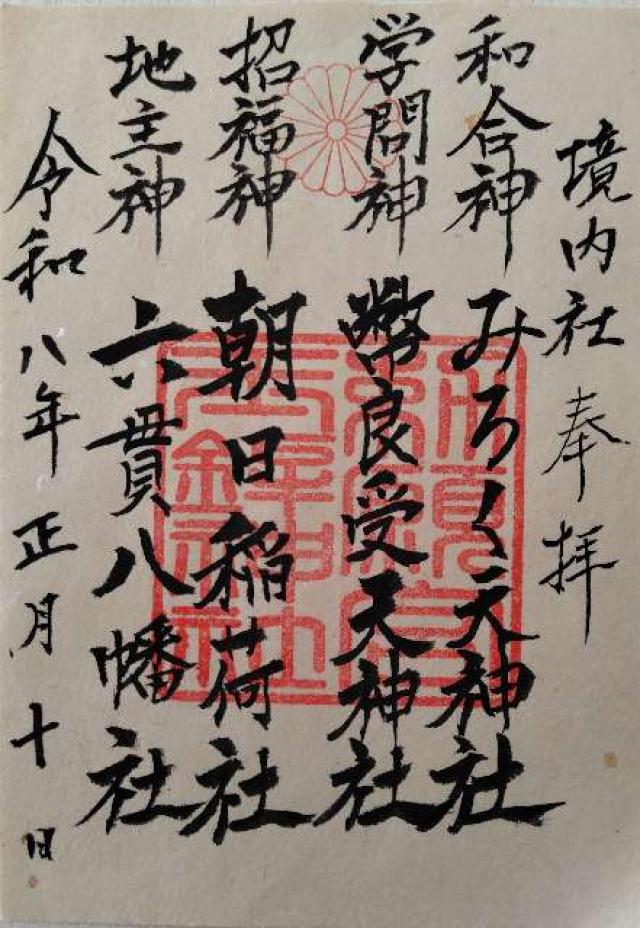 境内社 奉拝
和合神 みろく天神社
学問神 幣良受天神社
招福神 朝日稲荷社
地主神 六貫八幡社
令和八年正月十日